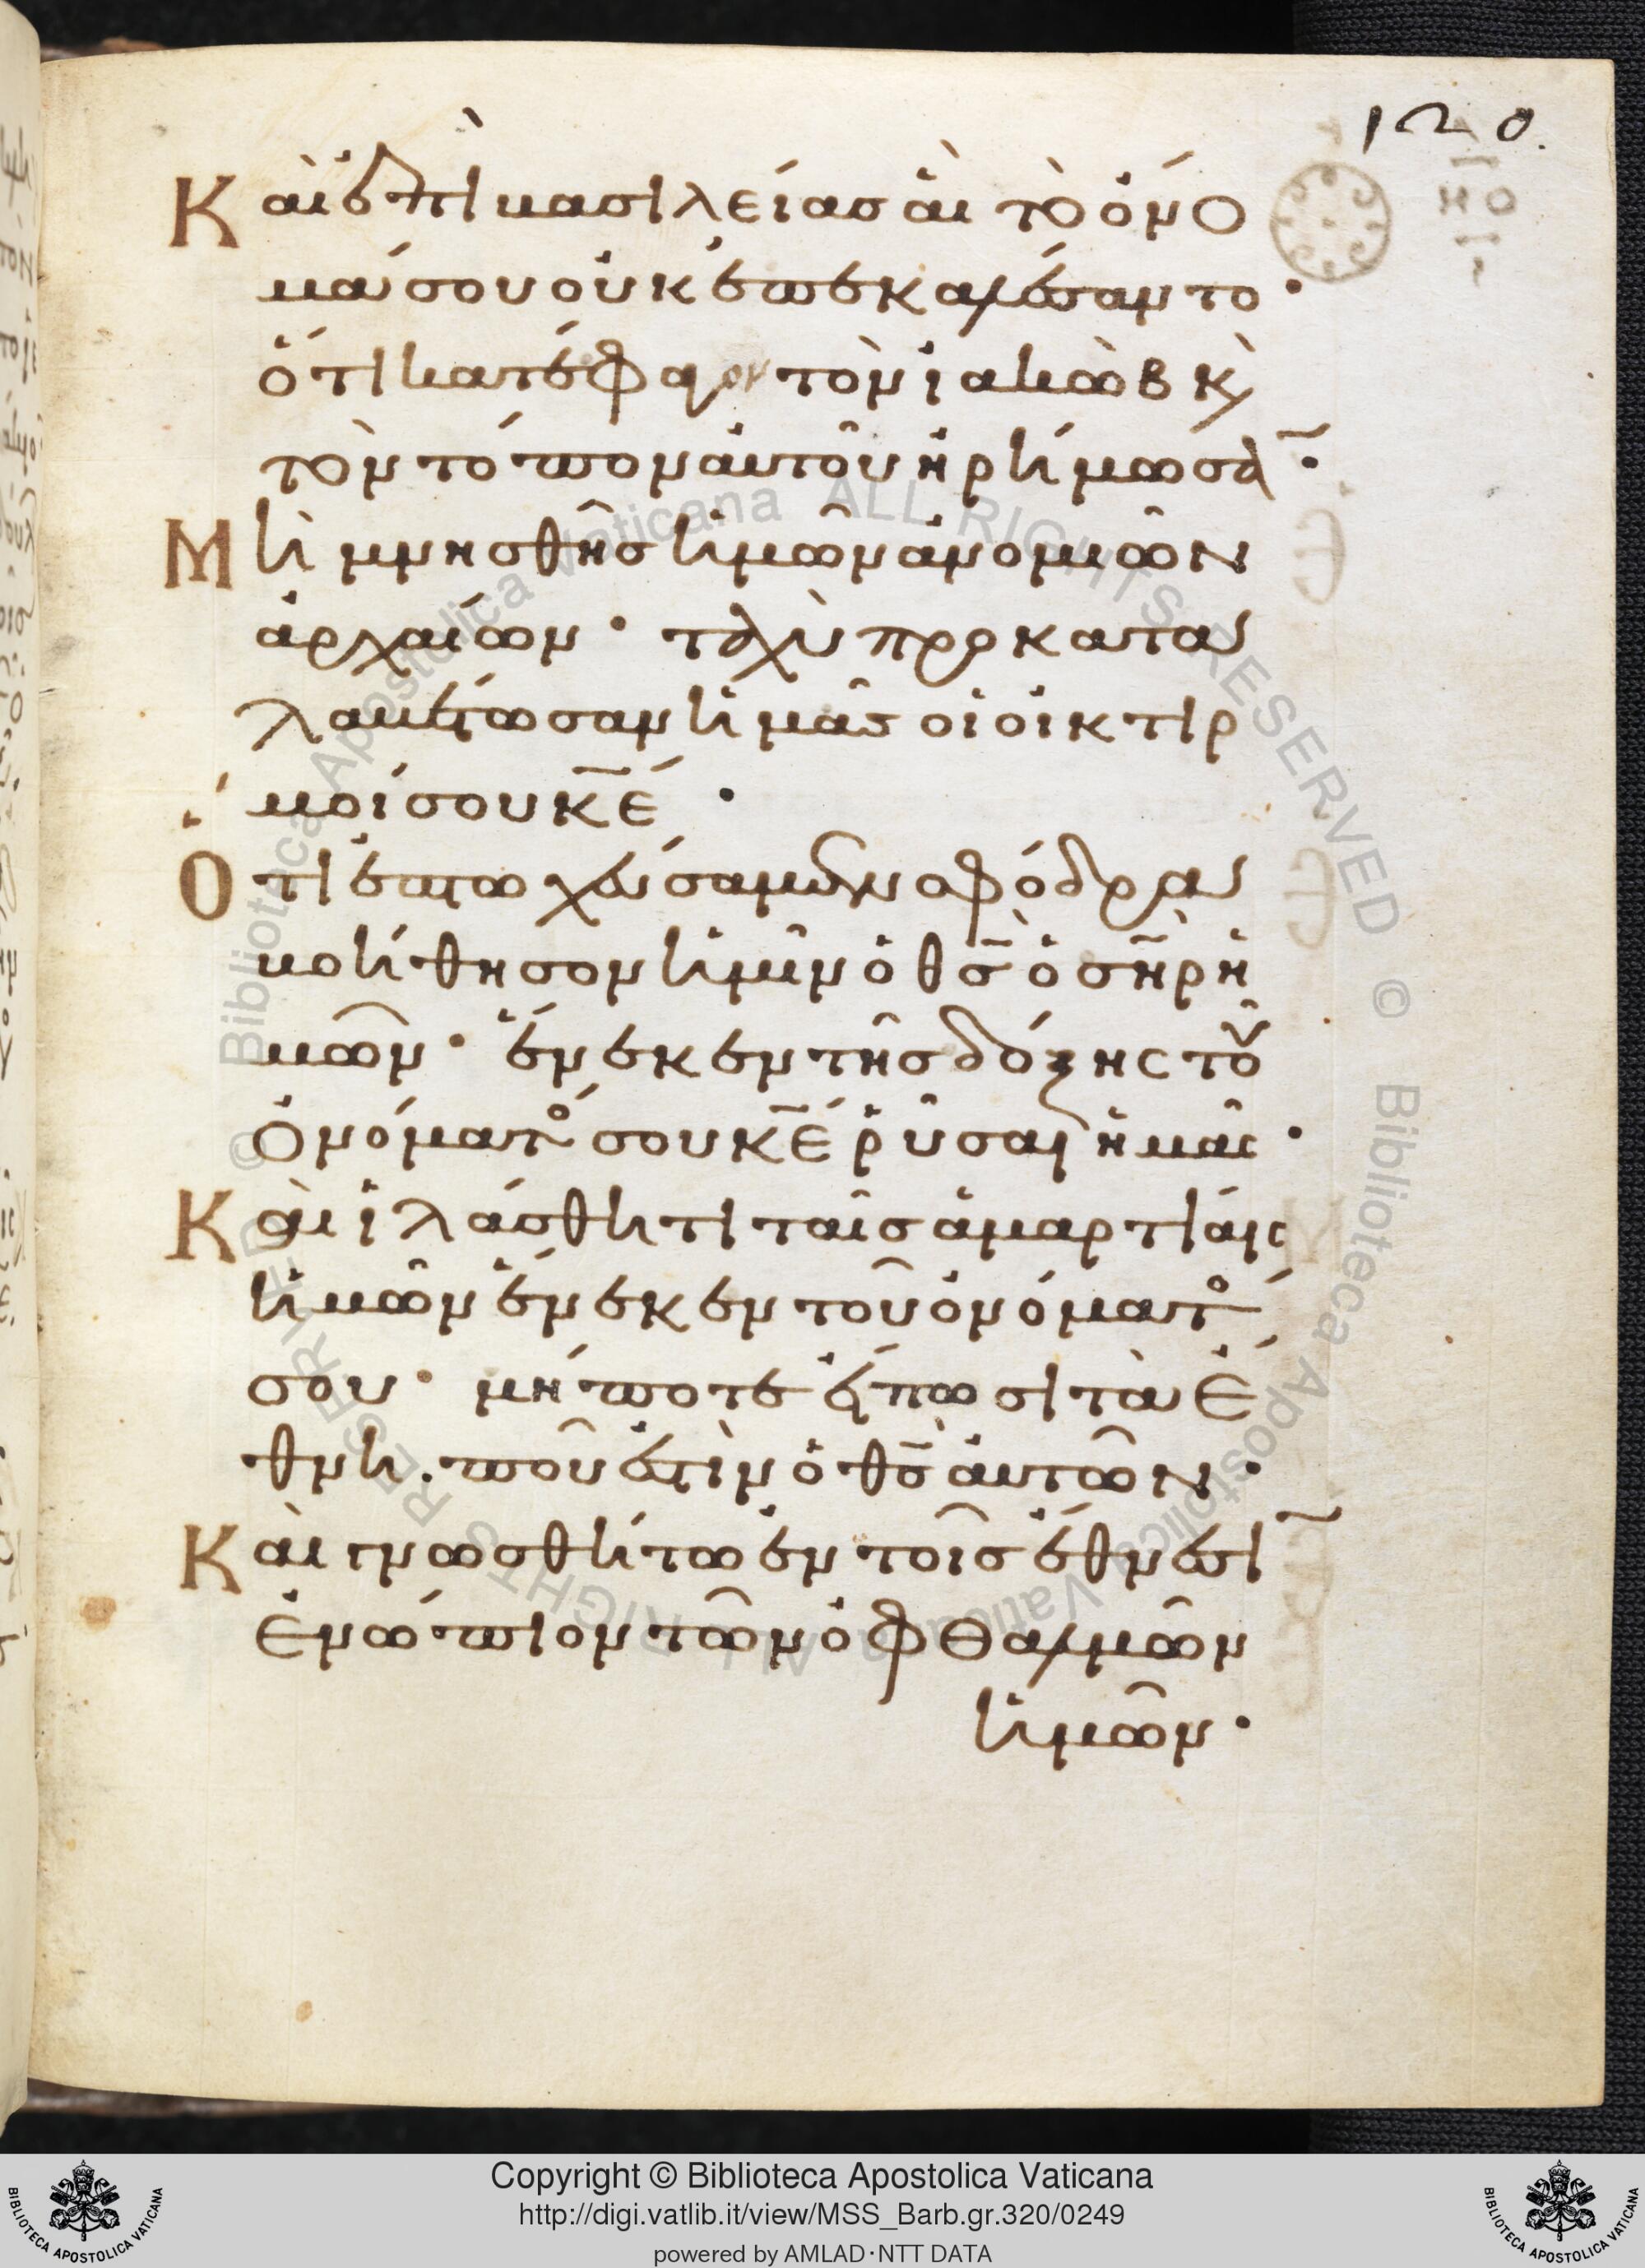 120.
Καὶ ἐπὶ βασιλείας αἳ τὸ ὄνο
μά σου οὐκ ἐπεκαλέσαντο·
ὅτι κατέφαγον τὸν ἰακὼβ κὶ
τὸν τόπον αὐτοῦ ἠρήμωσᾱ·
Μὴ μνησθῇς ἡμῶν ἀνομιῶν
ἀρχαίων· ταχὺ προκατα
λαβέτωσαν ἡμᾶς οἱ οἰκτιρ
μοί σου κ̅ε̅·
Ὅτι ἐπτωχεύσαμεν σφόδρα
βοήθησον ἡμῖν ὁ θ̅ς̅ ὁ σ̅η̅ρ̅ ἡ
μῶν· ἕνεκεν τῆς δόξης τοῦ
ὀνόματός σου κ̅ε̅ ῥῦσαι ἡμᾶς·
Καὶ ἱλάσθητι ταῖς ἁμαρτίαις
ἡμῶν ἕνεκεν τοῦ ὀνόματός
σου· μήποτε εἴπωσι τὰ ἔ
θνη. ποῦ ἐστὶν ὁ θ̅ς̅ αὐτῶν·
Καὶ γνωσθήτω ἐν τοῖς ἔθνεσῑ
ἐνώπιον τῶν ὀφθαλμῶν
ἡμῶν·
Copyright © Biblioteca Apostolica Vaticana
http://digi.vatlib.it/view/MSS_Barb.gr.320/0249
powered by AMLAD·NTT DATA
BIBLIOTECA APOSTOLICA VATICANA
BIBLIOTECA APOSTOLICA VATICANA
© Biblioteca Apostolica Vaticana ALL RIGHTS RESERVED © Biblioteca Apostolica Vaticana ALL RIGHTS RESERVED